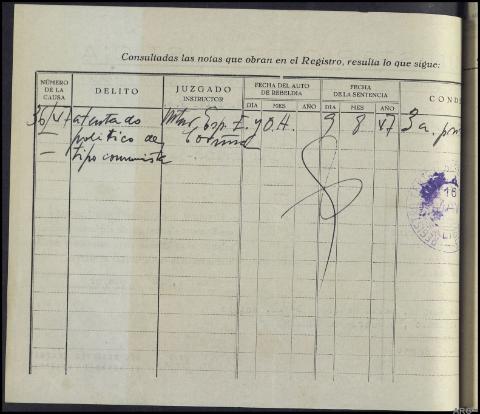 Consultadas las notas que obran en el Registro, resulta lo que sigue:
NÚMERO DE LA CAUSA DELITO JUZGADO INSTRUCTOR FECHA DEL AUTO DE REBELDIA FECHA DE LA SENTENCIA COND
DIA MES AÑO DIA MES AÑO
36/47 atentado Mtar. Esp. E. y O.A. 9 8 47 3 a. pr
político de Coruña
tipo comunista
16